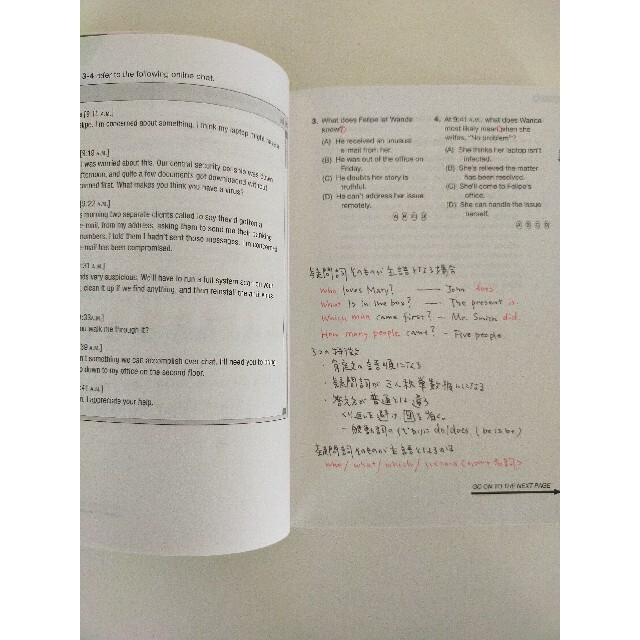 3-4 refer to the following online chat.
[9:11 A.M.]
I'm concerned about something. I think my laptop might have a
[9:19 A.M.]
was worried about this. Our central security console was down
afternoon, and quite a few documents got downloaded without
scanned first. What makes you think you have a virus?
[9:22 A.M.]
morning two separate clients called to say they'd gotten a
e-mail, from my address, asking them to send me their banking
numbers. I told them I hadn't sent those messages. I'm concerned
mail has been compromised.
:31 A.M.]
very suspicious. We'll have to run a full system scan on your
clean it up if we find anything, and then reinstall the
:33 A.M.]
you walk me through it?
:39 A.M.]
something we can accomplish over chat. I'll need you to bring
down to my office on the second floor.
A.M.]
I appreciate your help.
3. What does Felipe let Wanda
know?
(A) He received an unusual
e-mail from her.
(B) He was out of the office on
Friday.
(C) He doubts her story is
truthful.
(D) He can't address her issue
remotely.
A B C D
4. At 9:41 A.M., what does Wanda
most likely mean when she
writes, "No problem"?
(A) She thinks her laptop isn't
infected.
(B) She's relieved the matter
has been resolved.
(C) She'll come to Felipe's
office.
(D) She can handle the issue
herself.
A B C D
疑問詞そのものが主語になる場合
Who loves Mary? — John does.
What is in the box? — The present is.
Which man came first? — Mr. Smith did.
How many people came? — Five people
3つの特徴
・肯定文の語順になる
・疑問詞が三人称単数扱いになる
・答え方が普通とは違う
くり返しを避け
一般動詞の代わりに do/does (be は be)
疑問詞そのものが主語となるのは
who / what / which /
GO ON TO THE NEXT PAGE